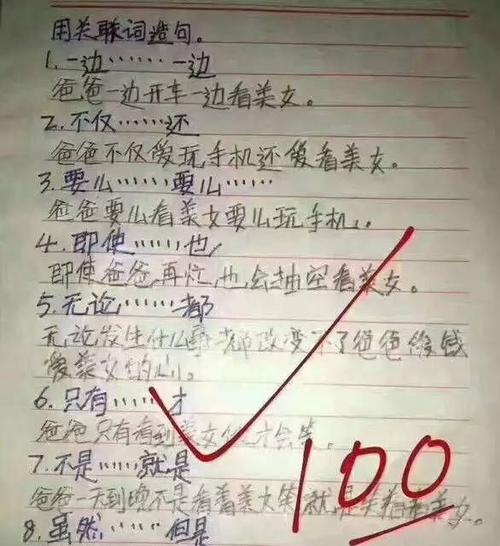 用关联词造句。
1.一边……一边
爸爸一边开车一边看美女。
2.不仅……还
爸爸不仅爱玩手机还爱看美女。
3.要么……要么……
爸爸要么看美女要么玩手机。
4.即使……也,
即使爸爸再忙,也会抽空看美女。
5.无论……都
无论发生什么事都改变不了爸爸
爱美女的心。
6.只有……才
爸爸只有看到美女他才会笑。
7.不是……就是
爸爸一天到晚不是看着美女笑就是笑着看美女。
8.虽然……但是
100